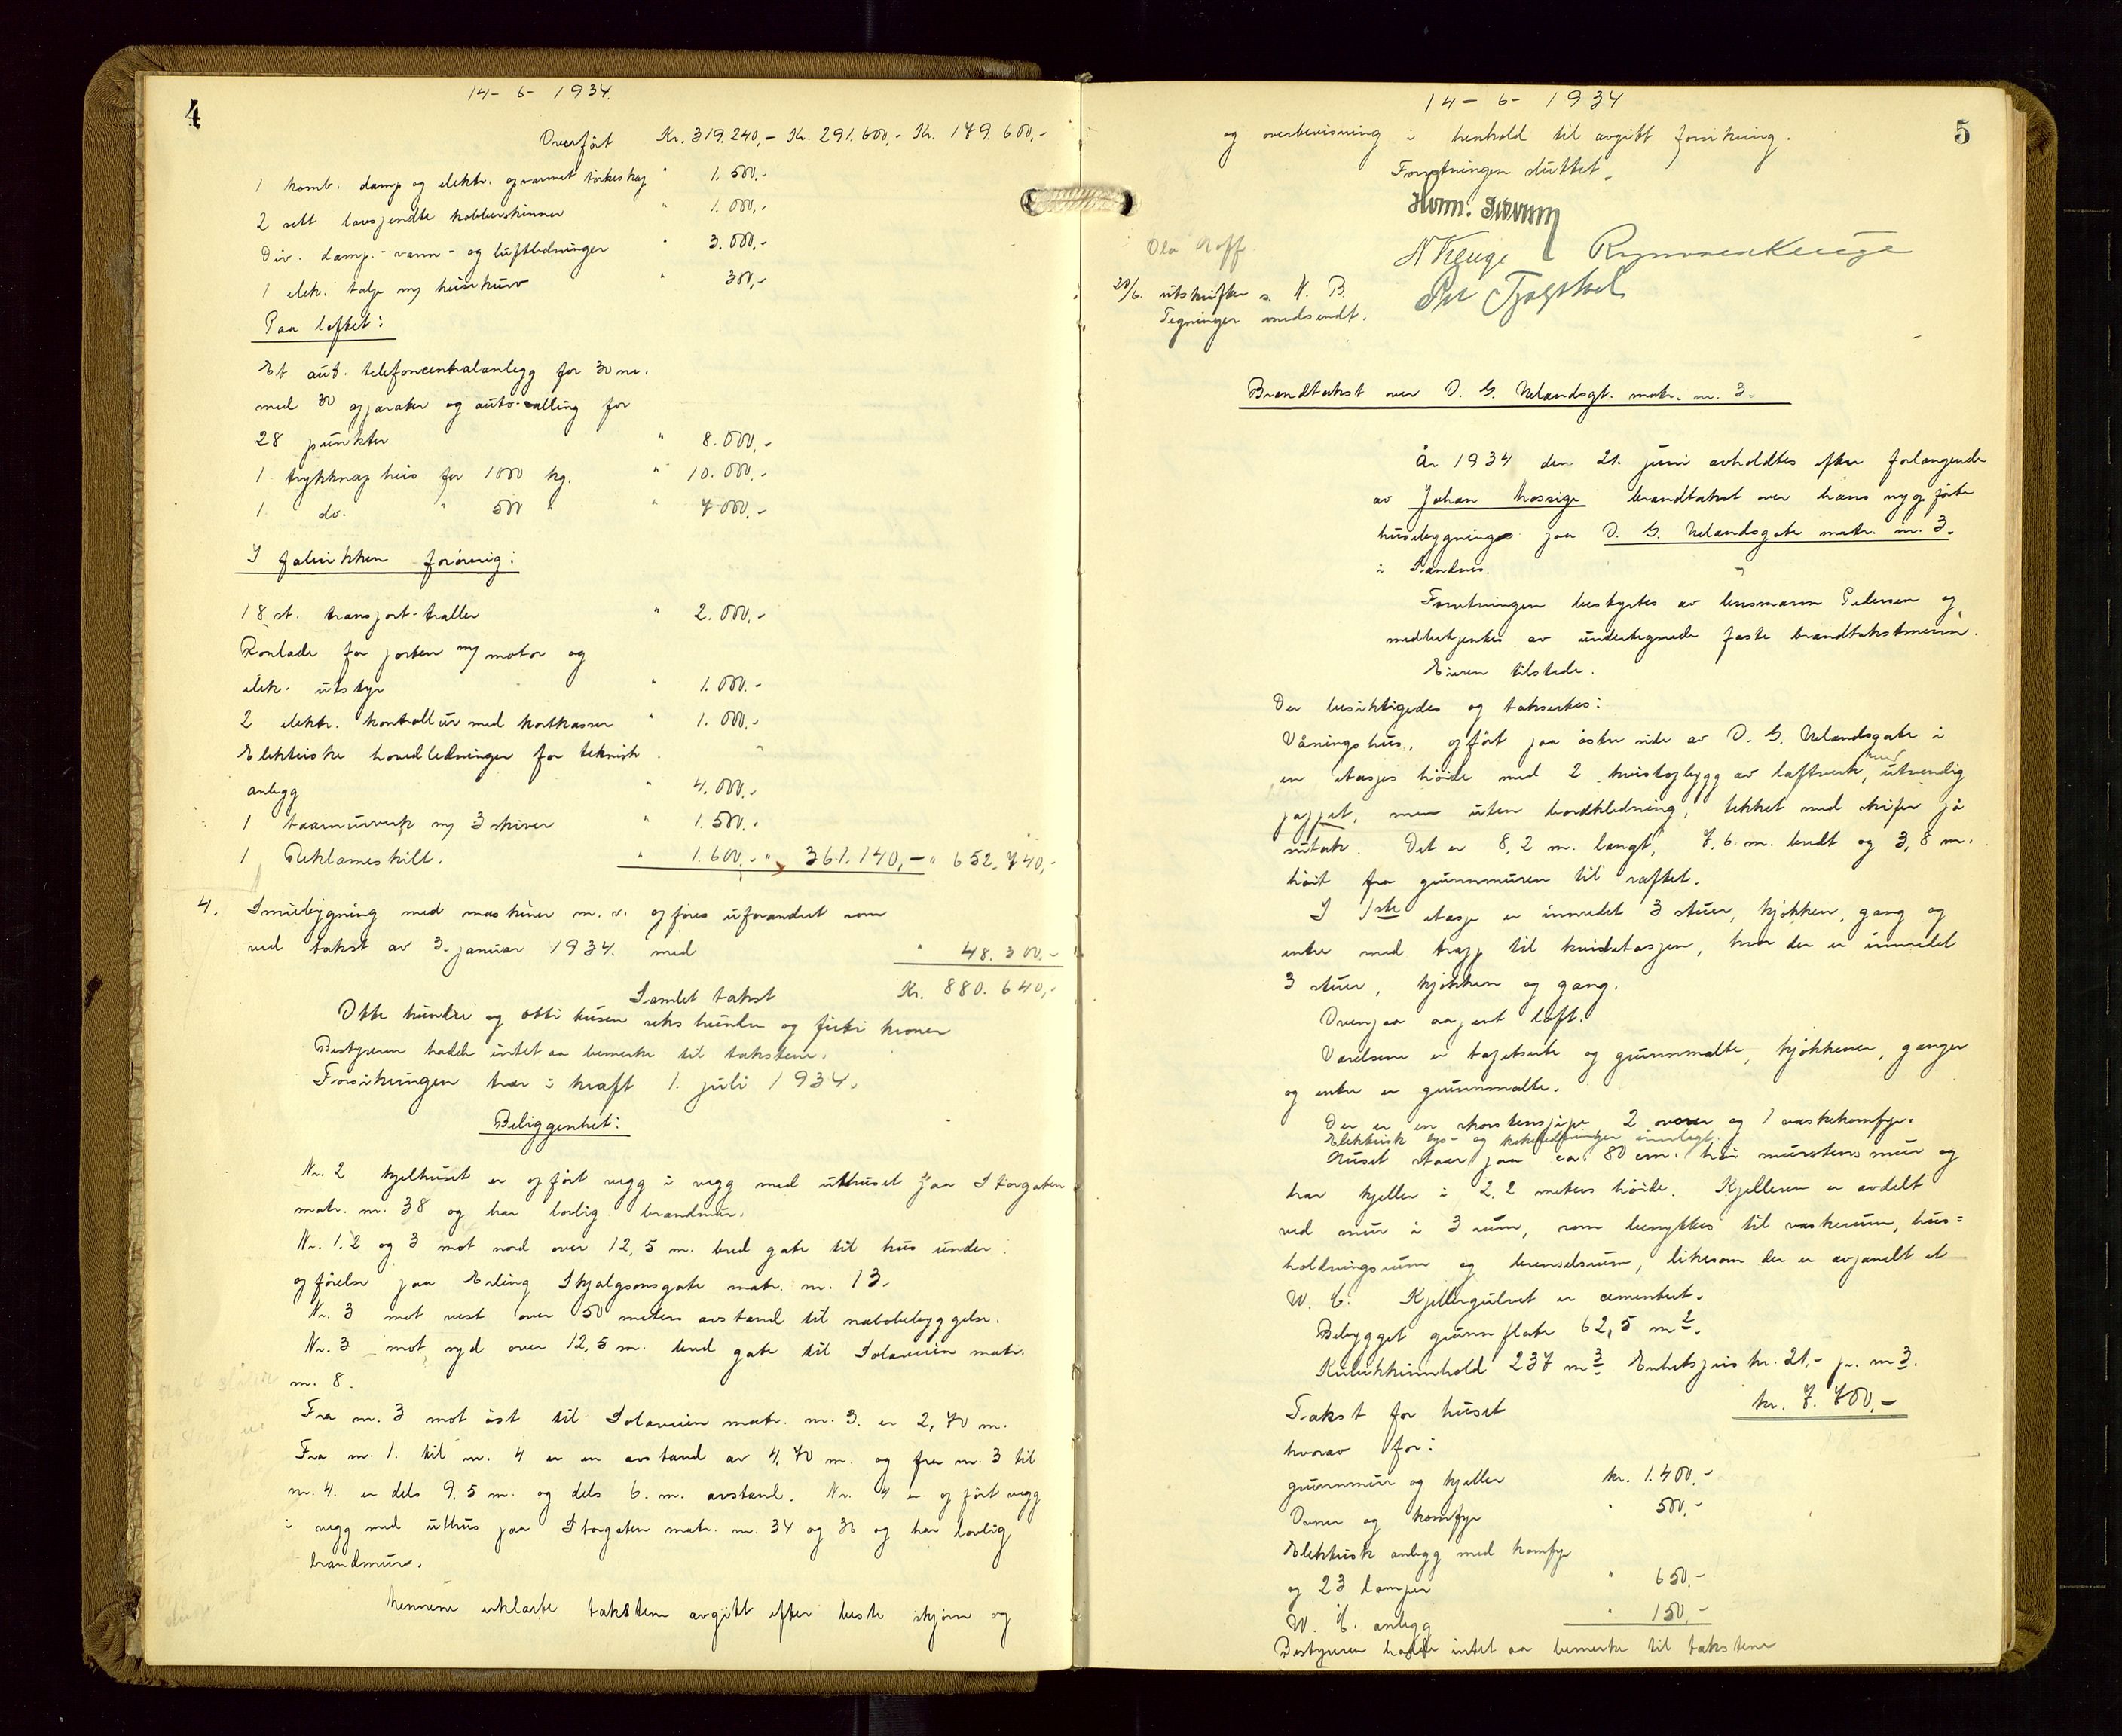 4
14-6-1934.
Overført Kr. 319.240,- Kr. 291.600,- Kr. 179.600,-
1 komb. damp og elektr. opvarmet tørkeskap " 1.500.-
2 sett lavspendte kobberskinner " 1.000,-
Div. damp.- vann- og luftledninger " 3.000.-
1 elek. talje m/ heisekurv " 300,-
Paa loftet:
Et aut. telefoncentralanlegg for 30 nr.
med 30 apparater og auto-calling for
28 punkter " 8.000,-
1 trykknap heis for 1000 kg. " 10.000.-
1 do. " 500 " " 7000.-
I fabrikken forøvrig:
18 st. transport-traller " 2.000,-
for porten m/ motor og
elek. utstyr " 1.000.-
2 elektr. kontrollur med kortkasser " 1.000,-
Elektriske hovedledninger for teknisk
anlegg " 4.000,-
1 taarnurverk m/ 3 skiver " 1.500.-
1 Reklameskilt. " 1.600,- " 361.140,- " 652.740,-
4. Smiebygning med maskiner m.v. opføres uforandret som
ved takst av 3. januar 1934. med " 48.300.-
Samlet takst Kr. 880.640,-
Otte hundre og otti tusen seks hundre og firti kroner
Bestyreren hadde intet aa bemerke til takstene.
Forsikringen trær i kraft 1. juli 1934.
Beliggenhet:
Nr. 2 kjelhuset er opført vegg i vegg med uthuset paa Storgaten
matr. nr. 38 og har lovlig brandmur.
Nr. 1. 2 og 3 mot nord over 12,5 m. bred gate til hus under
opførelse paa Erling Skjalgsonsgate matr. nr. 13.
Nr. 3 mot vest over 50 meters avstand til nabobebyggelse.
Nr. 3 mot syd over 12,5 m. bred gate til Solaveien matr.
nr. 8.
Fra nr. 3 mot øst til Solaveien matr. nr. 3. er 2,70 m.
Fra nr. 1. til nr. 4 er en avstand av 4,70 m. og fra nr. 3 til
nr. 4. er dels 9,5 m. og dels 6. m. avstand. Nr. 4 er opført vegg
i vegg med uthus paa Storgaten matr. nr. 34 og 36 og har lovlig
brandmur.
Mennene erklærte takstene avgitt efter beste skjønn og
5
14-6-1934
og overbevisning i henhold til avgitt forsikring.
Forretningen sluttet.
20/6. utskrifter s. N. B.
Tegninger medsendt.
Brandtakst over O. G. Uelandsgt. matr. nr. 3.
År 1934 den 21. juni avholdtes efter forlangende
av Johan Mossige brandtakst over hans nyopførte
husebygning paa O. G. Uelandsgate matr. nr. 3.
i Sandnes.
Forretningen bestyrtes av lensmann Pedersen og
medbetjentes av undertegnede faste brandtakstmenn.
Eieren tilstede.
Der besiktigedes og taksertes:
Våningshus, opført paa østre side av O. G. Uelandsgate i
en etasjes høide med 2 kvistopbygg av laftverk, utvendig
pappet, men uten bordkledning, tekket med skifer på
sutak. Det er 8,2 m. langt, 7,6 m. bredt og 3,8 m.
høit fra grunnmuren til raftet.
I 1ste etasje er innredet 3 stuer, kjøkken, gang og
entre med trapp til kvistetasjen, hvor der er innredet
3 stuer, kjøkken og gang.
Ovenpaa aapent loft.
Værelsene er tapetserte og grunnmalte, kjøkkener, ganger
og entre er grunnmalte.
Der er en skorstenspipe 2 ovner og 1 vaskekomfyr.
Elektrisk lys- og kokeledninger innlagt.
Huset staar paa ca. 80 cm. høi murstens mur og
har kjeller i 2,2 meters høide. Kjelleren er avdelt
ved mur i 3 rum, som benyttes til vaskerum, hus=
holdningsrum og brenselsrum, likesom der er avpanelt et
W. C. Kjellergulvet er cementert.
Bebygget grunnflate 62,5 m².
Kubikkinnhold 237 m³ Enhetspris kr. 21,- pr. m³.
Takst for huset kr. 7.700,-
hvorav for:
grunnmur og kjeller kr. 1.400.-
Ovner og komfyr " 500,-
Elektrisk anlegg med komfyr
og 23 lamper " 650,-
W. C. anlegg " 150,-
Bestyreren hadde intet aa bemerke til takstene